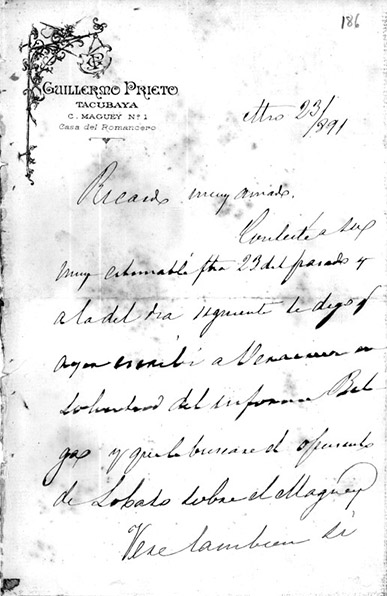 186
GUILLERMO PRIETO
TACUBAYA
C. MAGUEY Nº 1
Casa del Romancero
Mro 23/891
Ricardo muy amado.
Contesté a su
muy estimable fha 23 del pasado y
a la del dia siguiente le digo q
ayer escribí a Veracruz en
solicitud del informe
y que le buscase el
de Lobato sobre el Maguey
Vere tambien si